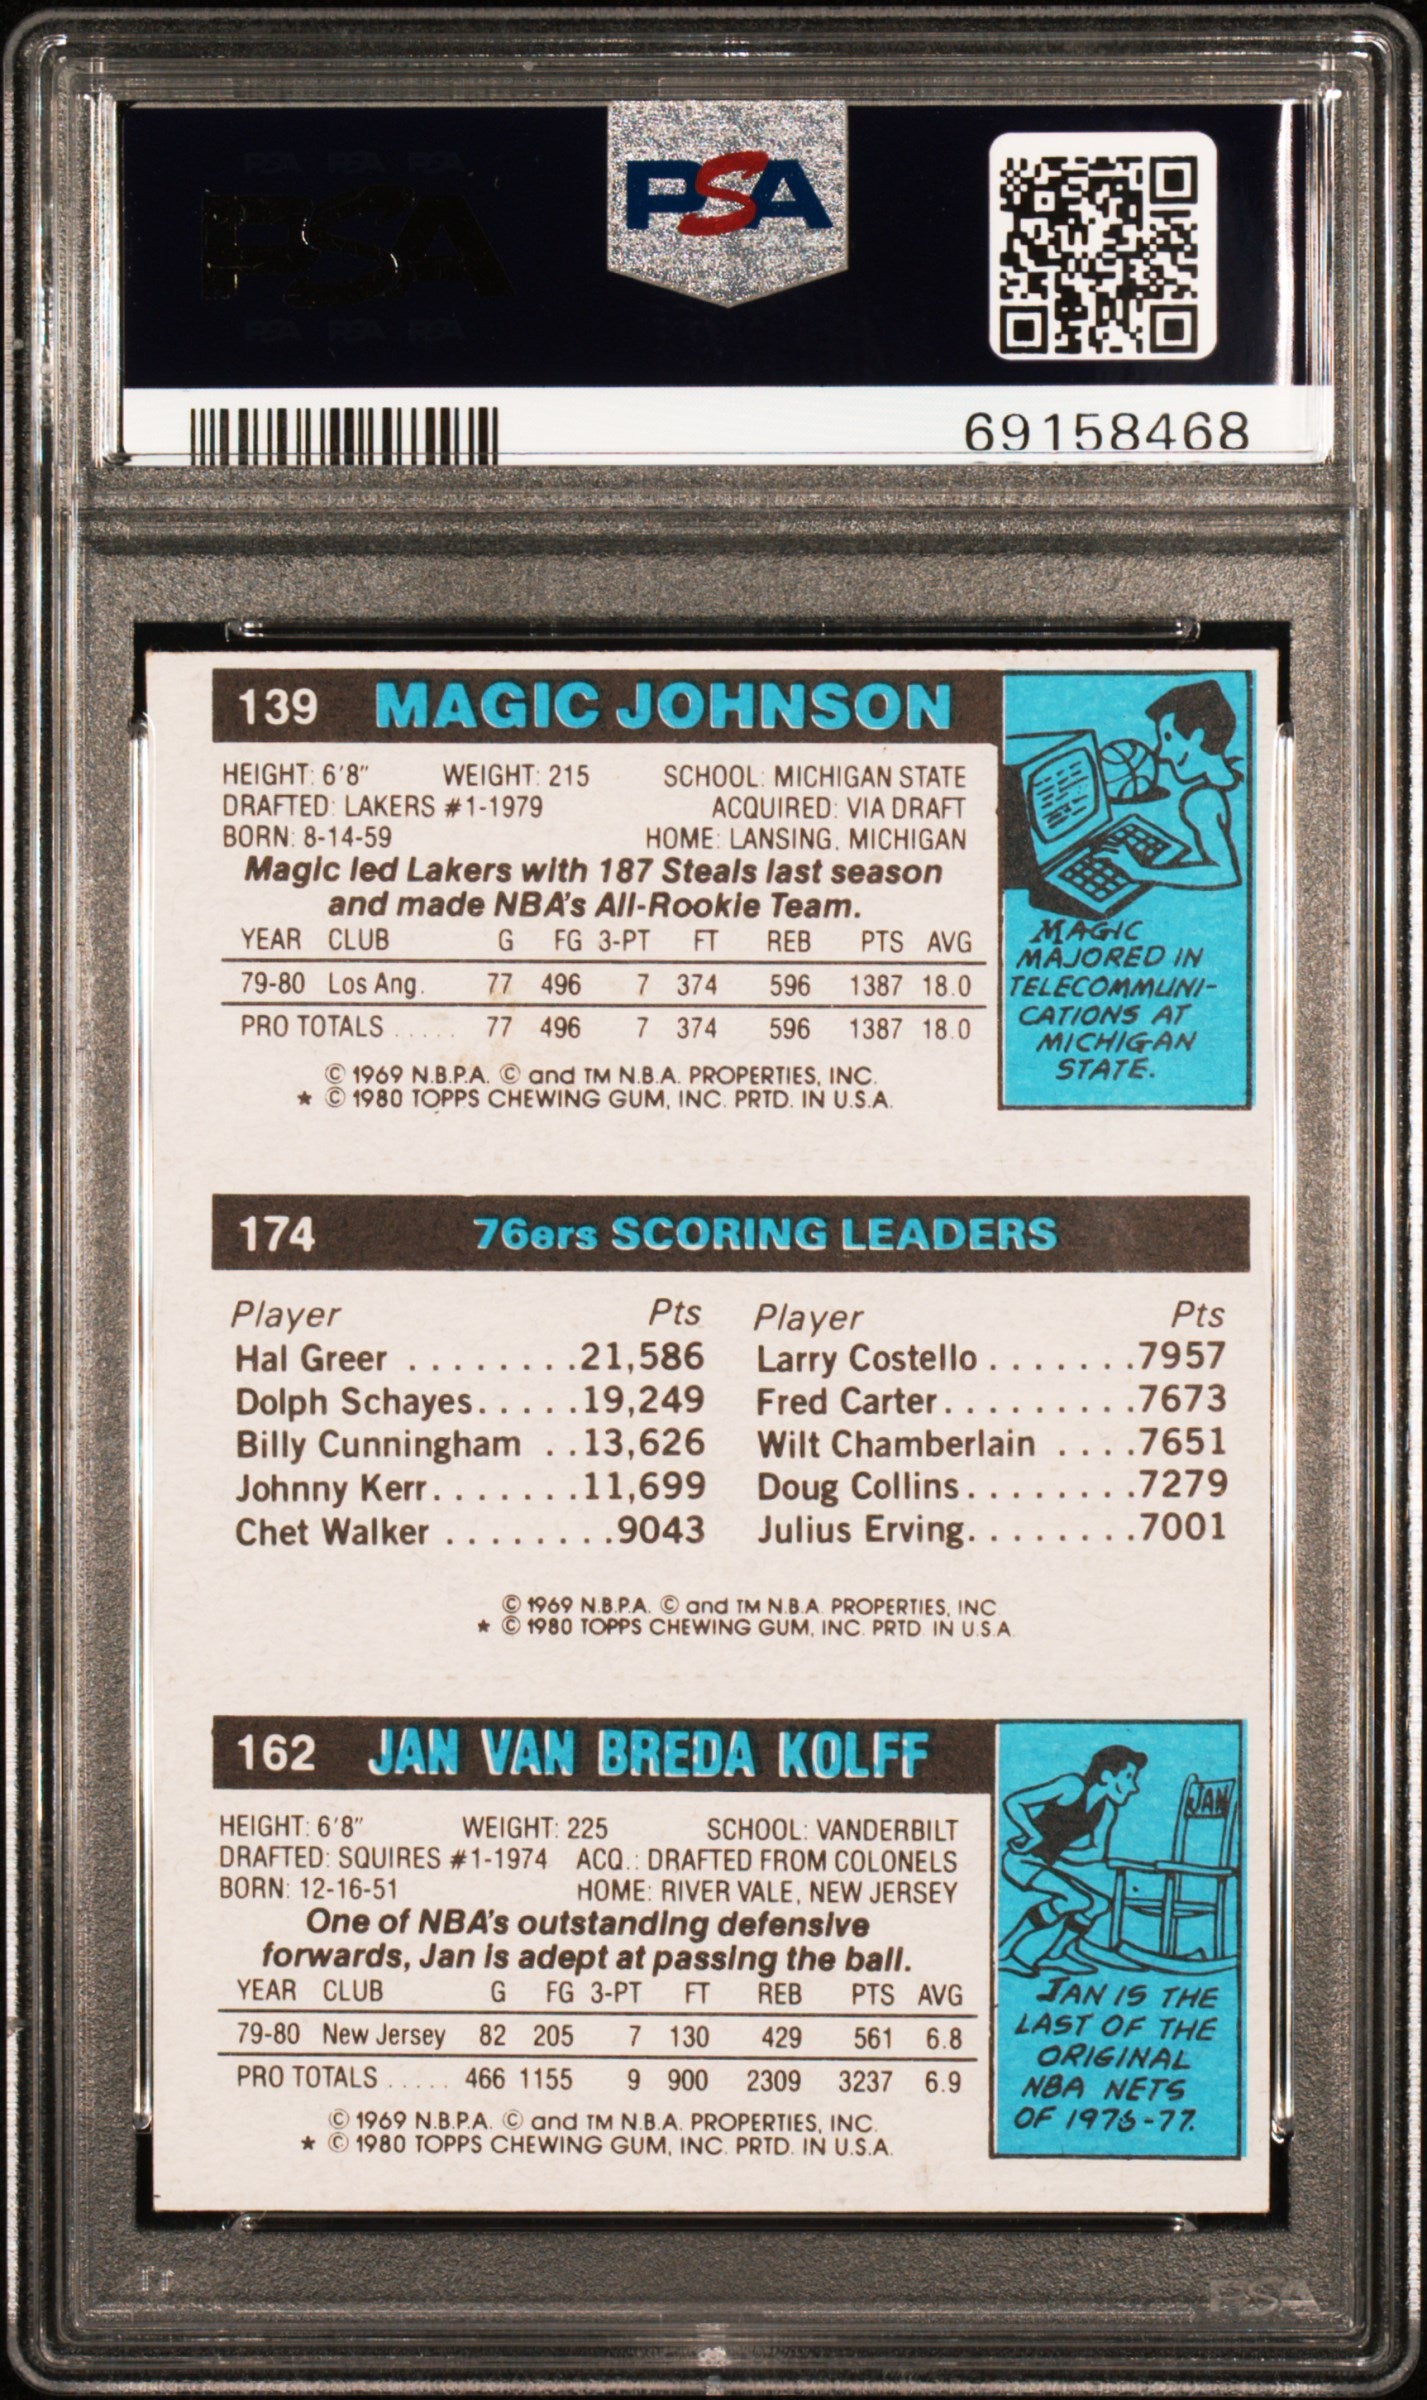 PSA PSA PSA
PSA
PSA PSA PSA
PSA
69158468
139 MAGIC JOHNSON
HEIGHT: 6'8" WEIGHT: 215 SCHOOL: MICHIGAN STATE
DRAFTED: LAKERS #1-1979 ACQUIRED: VIA DRAFT
BORN: 8-14-59 HOME: LANSING, MICHIGAN
Magic led Lakers with 187 Steals last season
and made NBA's All-Rookie Team.
YEAR CLUB G FG 3-PT FT REB PTS AVG
79-80 Los Ang. 77 496 7 374 596 1387 18.0
PRO TOTALS ..... 77 496 7 374 596 1387 18.0
© 1969 N.B.P.A. © and TM N.B.A. PROPERTIES, INC.
* © 1980 TOPPS CHEWING GUM, INC. PRTD. IN U.S.A.
MAGIC
MAJORED IN
TELECOMMUNI-
CATIONS AT
MICHIGAN
STATE.
174 76ers SCORING LEADERS
Player Pts Player Pts
Hal Greer ........21,586 Larry Costello.......7957
Dolph Schayes.....19,249 Fred Carter.........7673
Billy Cunningham ..13,626 Wilt Chamberlain ....7651
Johnny Kerr.......11,699 Doug Collins........7279
Chet Walker ........9043 Julius Erving........7001
© 1969 N.B.P.A. © and TM N.B.A. PROPERTIES, INC.
* © 1980 TOPPS CHEWING GUM, INC. PRTD. IN U.S.A.
162 JAN VAN BREDA KOLFF
HEIGHT: 6'8" WEIGHT: 225 SCHOOL: VANDERBILT
DRAFTED: SQUIRES #1-1974 ACQ.: DRAFTED FROM COLONELS
BORN: 12-16-51 HOME: RIVER VALE, NEW JERSEY
One of NBA's outstanding defensive
forwards, Jan is adept at passing the ball.
YEAR CLUB G FG 3-PT FT REB PTS AVG
79-80 New Jersey 82 205 7 130 429 561 6.8
PRO TOTALS ..... 466 1155 9 900 2309 3237 6.9
© 1969 N.B.P.A. © and TM N.B.A. PROPERTIES, INC.
* © 1980 TOPPS CHEWING GUM, INC. PRTD. IN U.S.A.
JAN
JAN IS THE
LAST OF THE
ORIGINAL
NBA NETS
OF 1976-77.
PSA